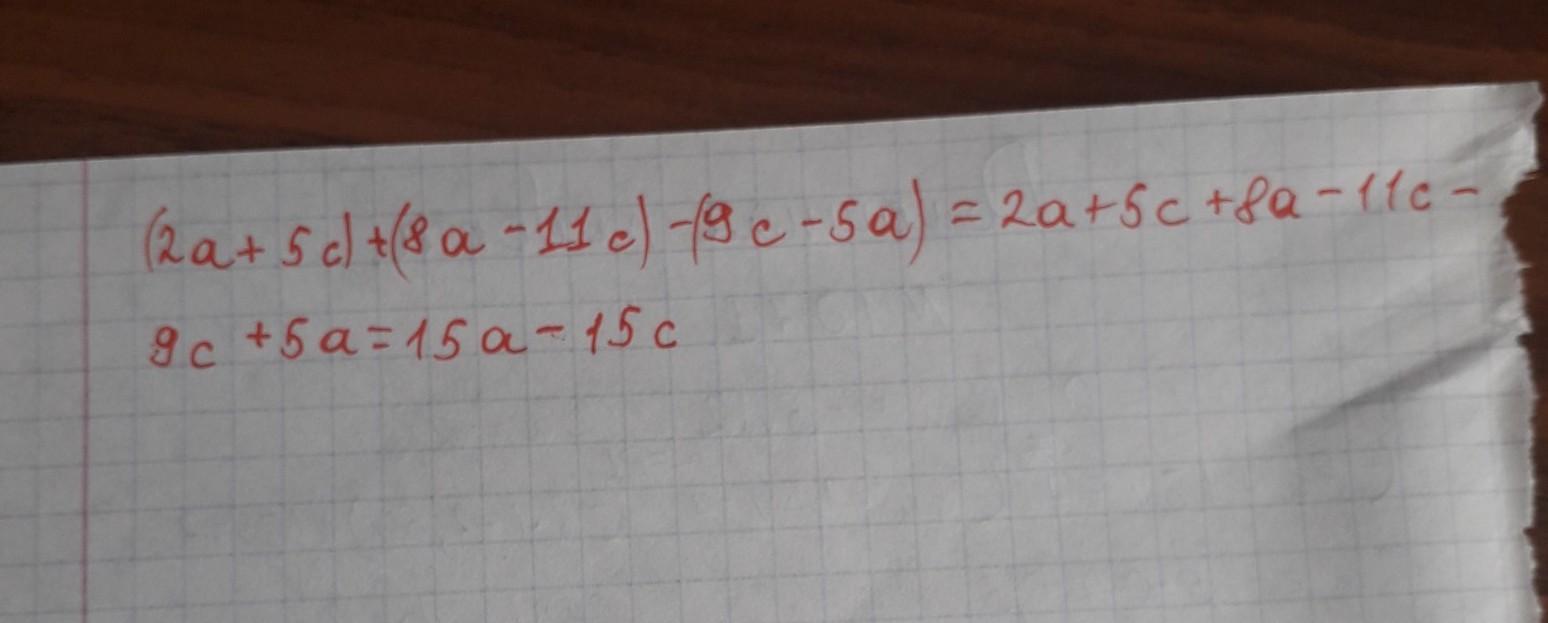 (2a+5c)+(8a-11c)-(9c-5a)=2a+5c+8a-11c-
9c+5a=15a-15c